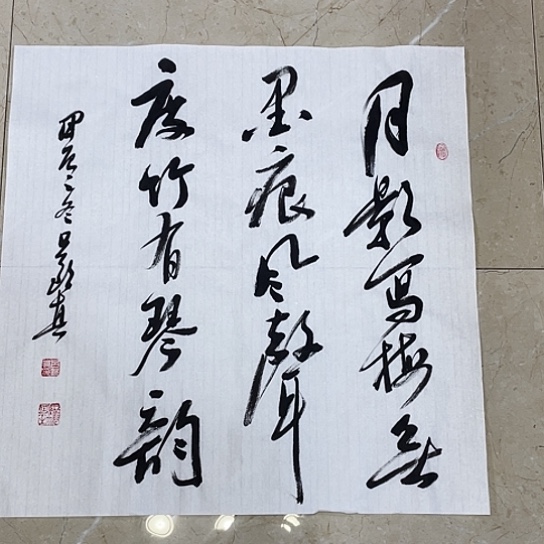 月影写梅無
墨痕风聲
度竹有琴韵
甲辰之冬